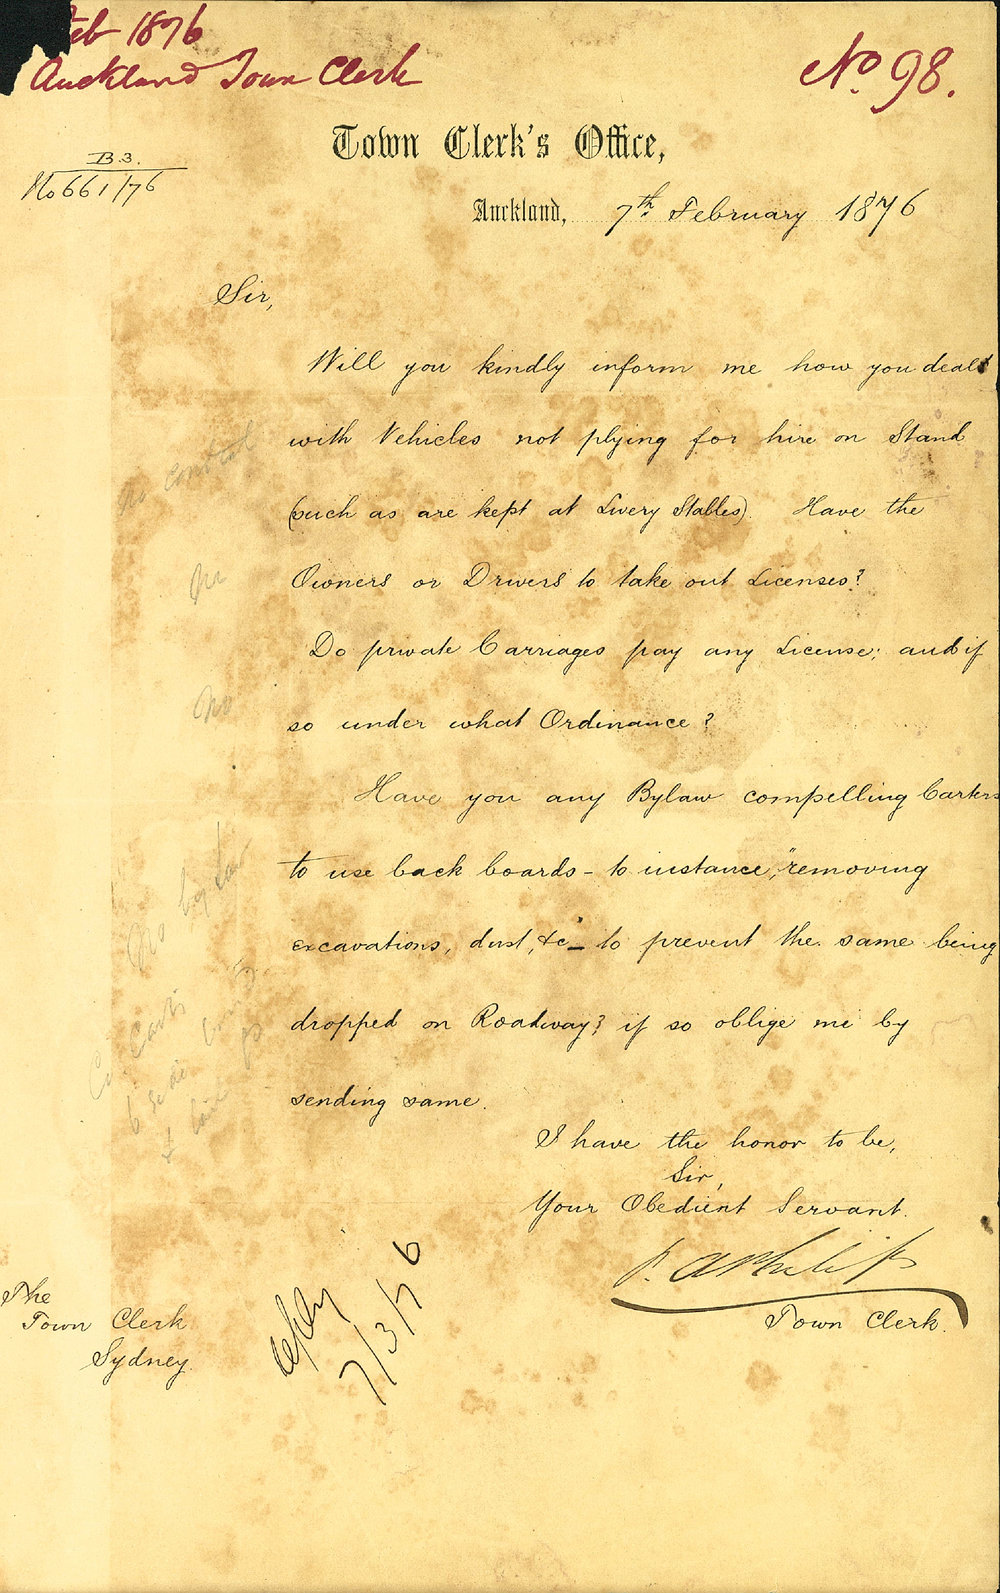 Feb 1876
Auckland Town Clerk
No 98.
Town Clerk's Office,
B.3.
No 661/76
Auckland, 7th February 1876
Sir,
Will you kindly inform me how you deal
with Vehicles not plying for hire on Stand
(such as are kept at Livery Stables). Have the
Owners or Drivers to take out Licenses?
Do private Carriages pay any License; and if
so under what Ordinance?
Have you any Bylaw compelling Carters
to use back boards - to instance, "removing
excavations, dust, &c" - to prevent the same being
dropped on Roadway? if so oblige me by
sending same.
no control
No
No
No by law
Carts
I have the honor to be,
Sir,
Your Obedient Servant.
P. A. Philips
Town Clerk.
The
Town Clerk
Sydney.
reply
7/3/76